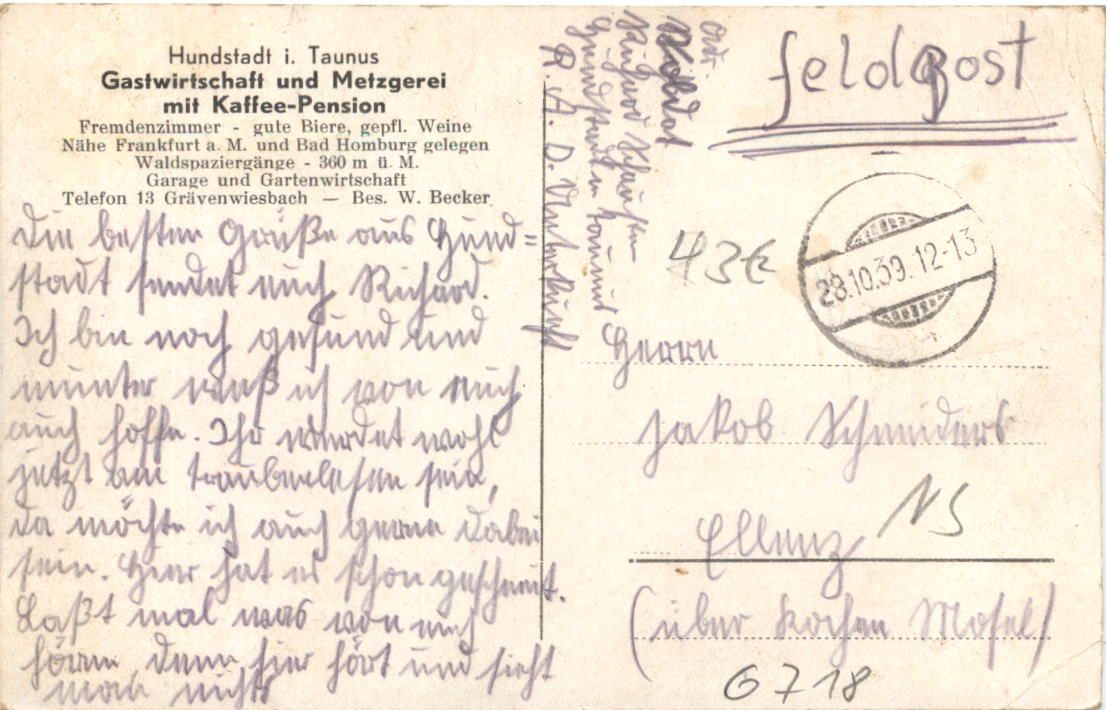 Hundstadt i. Taunus
Gastwirtschaft und Metzgerei
mit Kaffee-Pension
Fremdenzimmer - gute Biere, gepfl. Weine
Nähe Frankfurt a. M. und Bad Homburg gelegen
Waldspaziergänge - 360 m ü. M.
Garage und Gartenwirtschaft
Telefon 13 Grävenwiesbach — Bes. W. Becker
Die besten Grüße aus Hund=
stadt sendet euch Richard.
Ich bin noch gesund und
munter waß ich von euch
auch hoffe. Ihr werdet wohl
jetzt am traubenlesen sein,
da möchte ich auch gerne dabei
sein. Hier hat es schon geschneit.
Laßt mal was von euch
hören, denn hier hört und sieht
man nichts
Abs.
Soldat
Richard
Hundstadt im Taunus
R. A. D. Unterkunft
Feldpost
28.10.39.12-13
43€
Herrn
Jakob Schneiders
Ellenz
NS
(über Kochen Mosel)
G 718